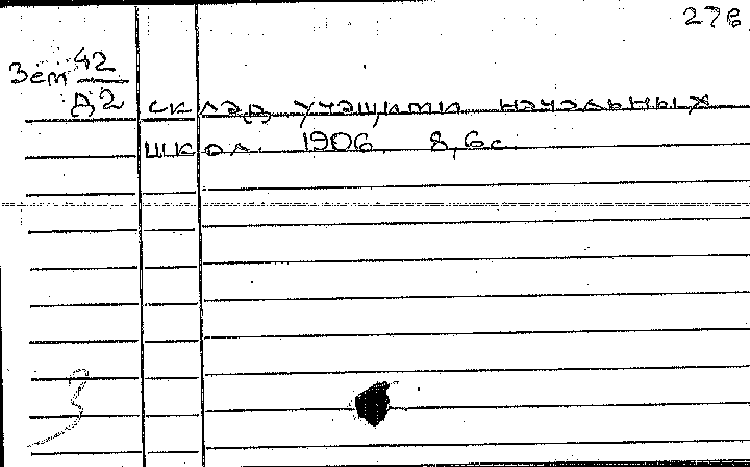 278
Зем 42
Д2
склад учащими начальных
школ. 1906. 8, 6 с.
3